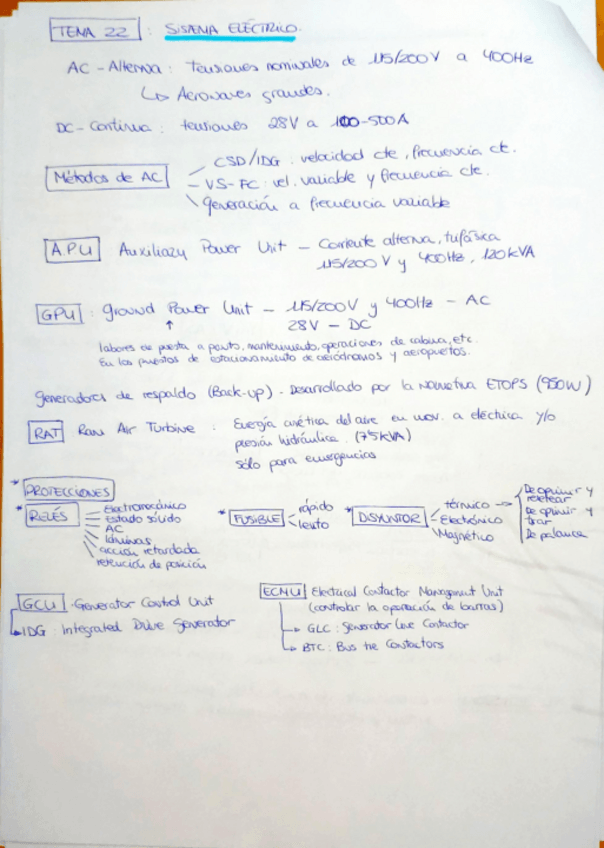 TEMA 22 : SISTEMA ELÉCTRICO.
AC - Alterna : Tensiones nominales de 115/200V a 400Hz
↳ Aeronaves grandes.
DC - Continua : tensiones 28V a 100-500A
Métodos de AC
CSD/IDG : velocidad cte, frecuencia cte.
VS-FC : vel. variable y frecuencia cte.
Generación a frecuencia variable
A.P.U Auxiliary Power Unit - Corriente alterna, trifásica
115/200 V y 400Hz, 120kVA
GPU : Ground Power Unit - 115/200V y 400Hz - AC
28V - DC
labores de puesta a punto, mantenimiento, operaciones de cabina, etc.
En los puestos de estacionamiento de aeródromos y aeropuertos.
Generadores de respaldo (Back-up) - Desarrollado por la Normativa ETOPS (950W)
RAT Ram Air Turbine : Energía cinética del aire en mov. a eléctrica y/o
presión hidráulica. (75kVA)
Sólo para emergencias
* PROTECCIONES
* RELÉS
Electromecánico
Estado sólido
AC
Láminas
acción retardada
retención de posición
* FUSIBLE
rápido
lento
* DISYUNTOR
térmico →
De oprimir y
resetear
De oprimir y
tirar
De palanca
Electrónico
Magnético
GCU - Generator Control Unit
IDG : Integrated Drive Generator
ECMU Electrical Contactor Management Unit
(controlar la operación de barras)
GLC : Generator Line Contactor
BTC : Bus tie Contactors